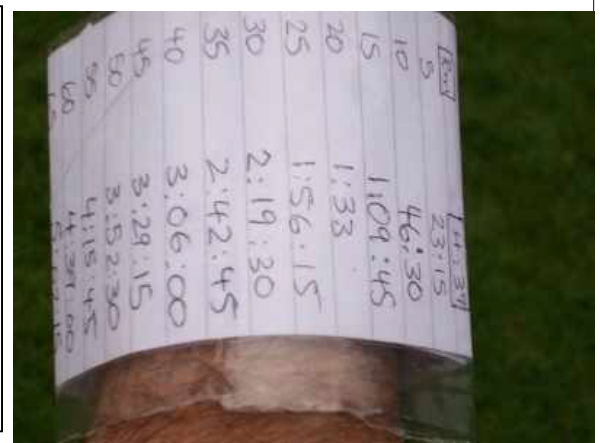 Km 4:39
5 23:15
10 46:30
15 1:09:45
20 1:33
25 1:56:15
30 2:19:30
35 2:42:45
40 3:06:00
45 3:29:15
50 3:52:30
4:15:45
60 4:39:00